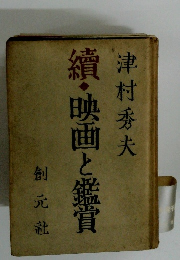 津村秀夫
續・映画と鑑賞
創元社